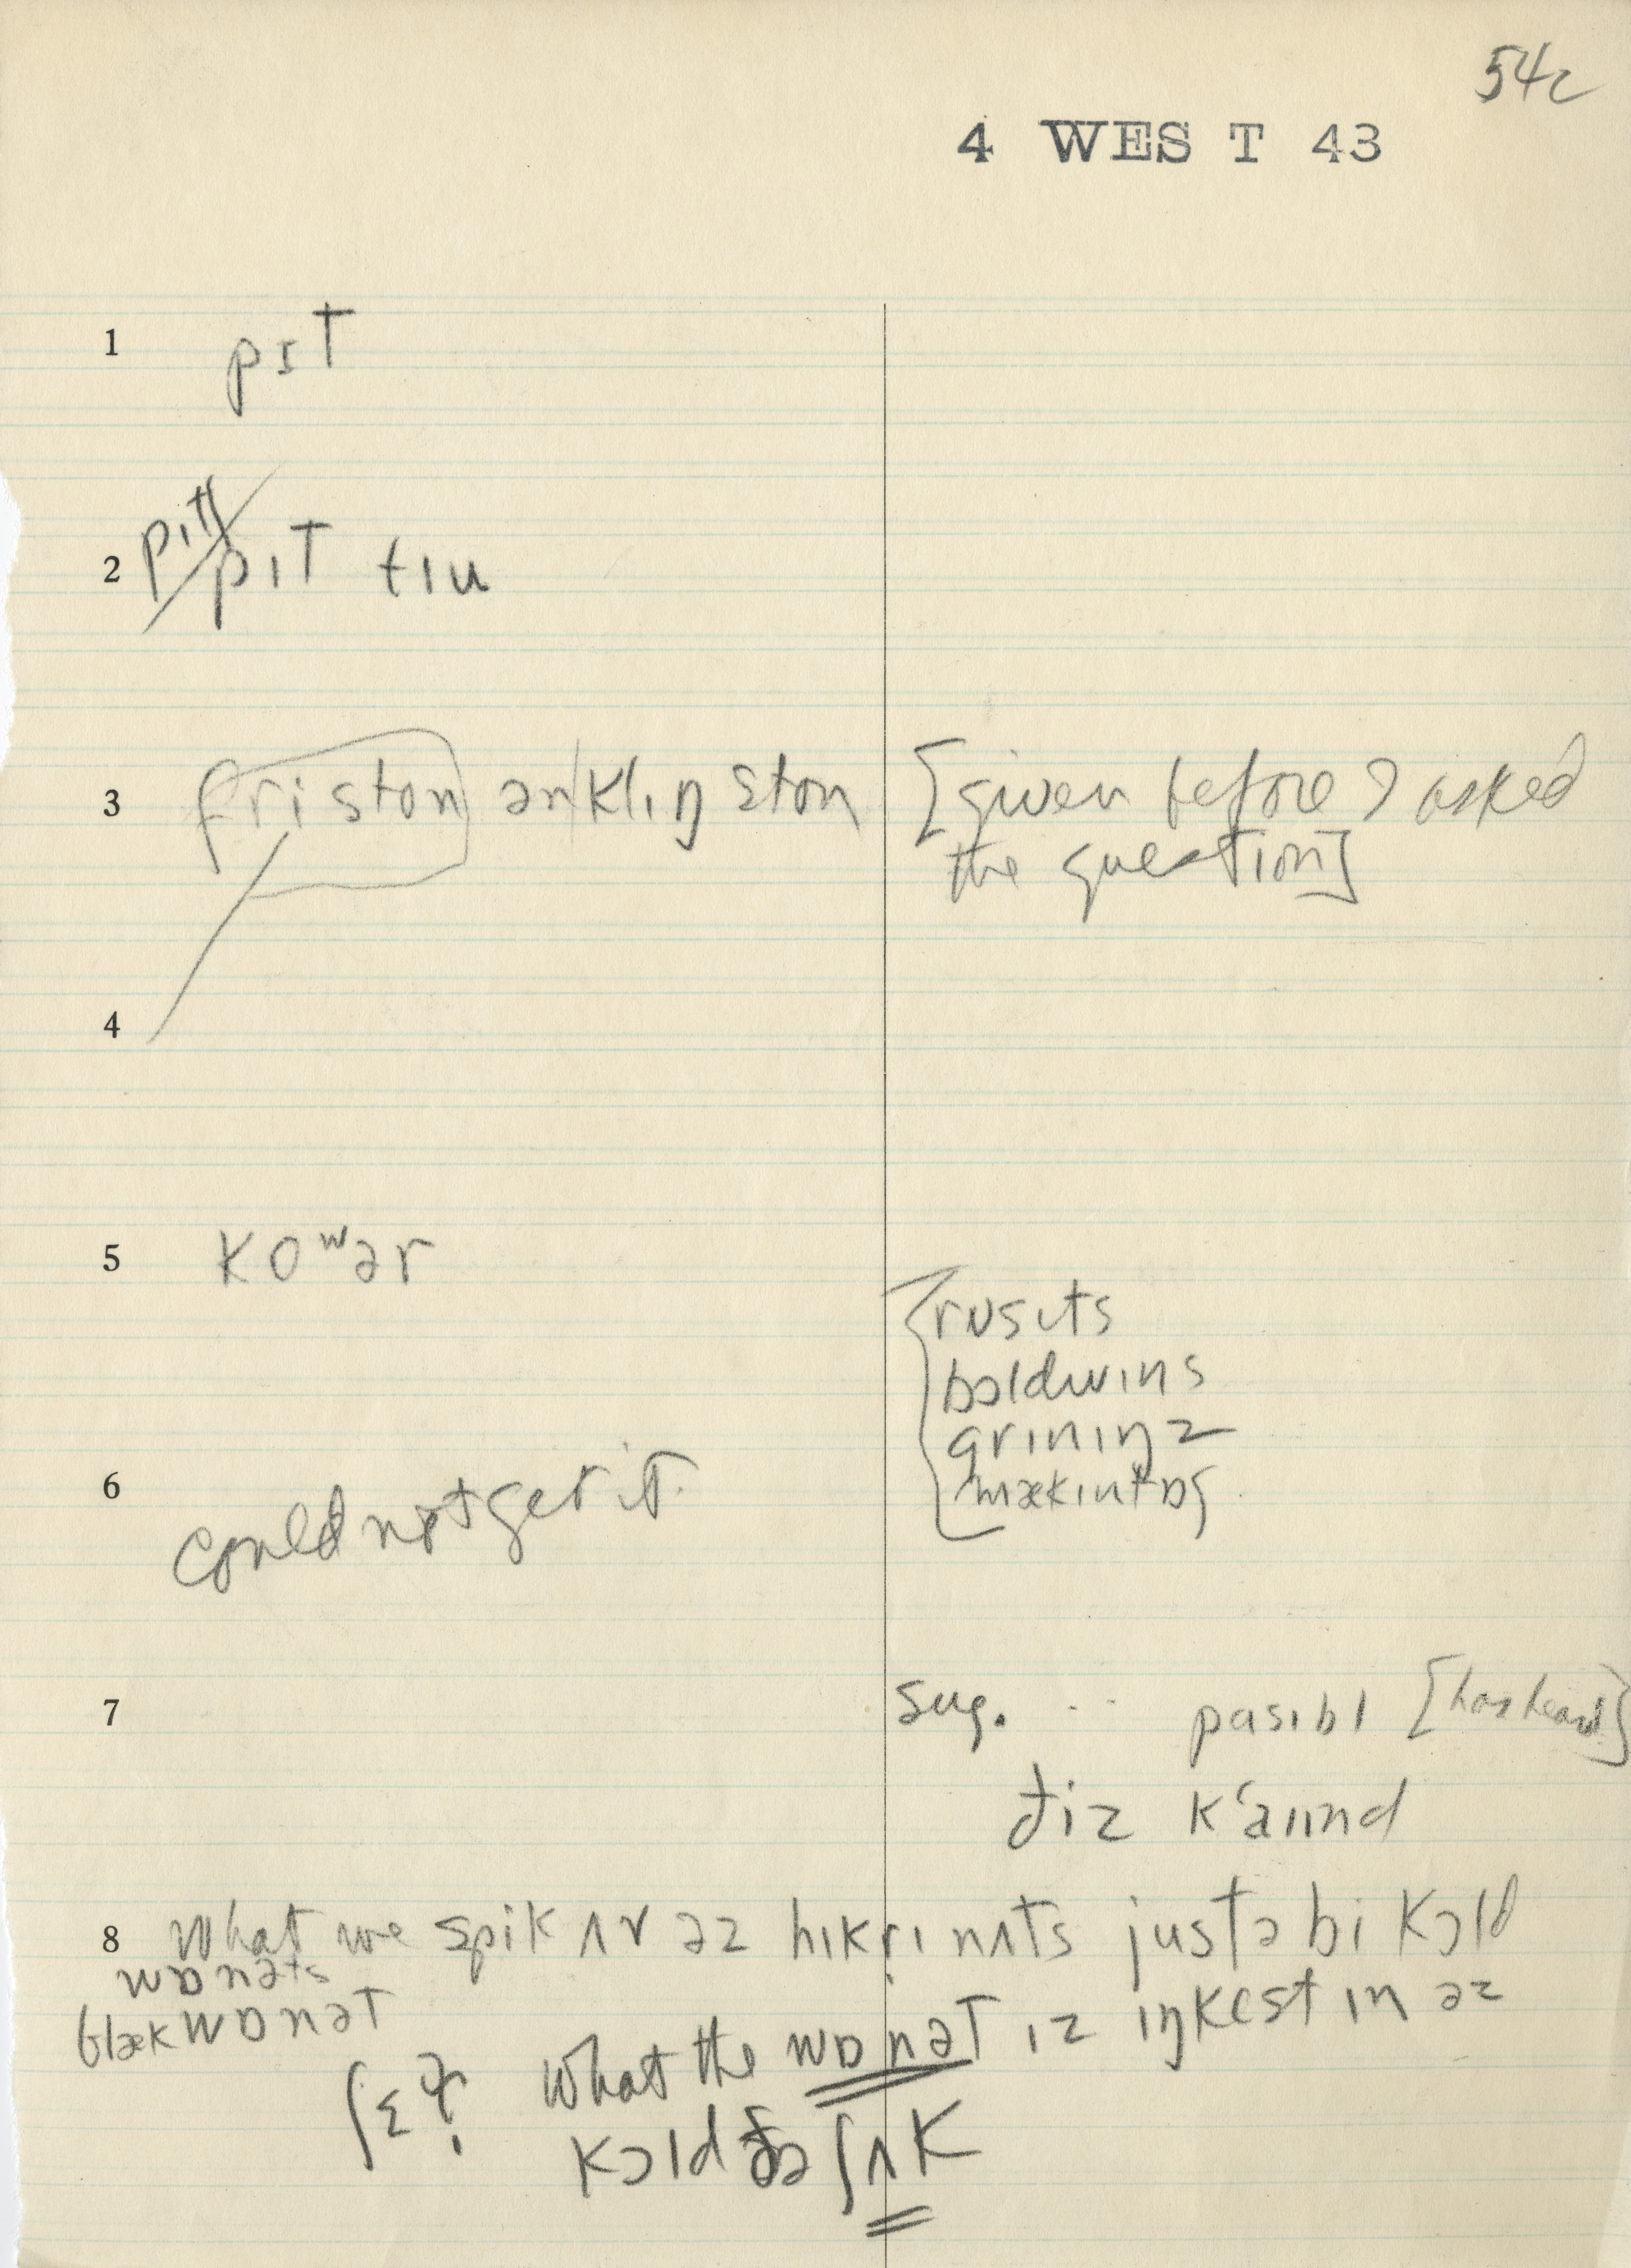 54c
4 WES T 43
1 pɪT
2 pɪT tɪu
3 friston ən klɪŋ ston [given before I asked
the question]
4
5 Koʷər
rɒsɪts
bɔldwɪns
griniŋz
mækɪntɒʃ
6 could not get it.
7 sug. pasɪbl [has heard]
ðiz kʻaɪɪnd
8 What we spik ʌv əz hɪkrɪ nʌts justə bi Kɔld
wɒnəts
blæk wɒnəT
What the wɒnəT ɪz iŋkest in əz
ʃɛ
Kɔld ðə ʃʌK